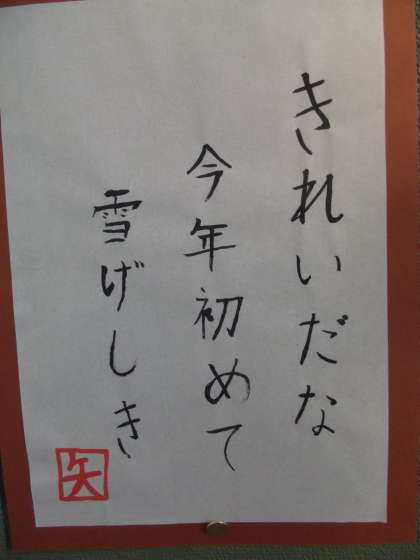 きれいだな
今年初めて
雪げしき
矢